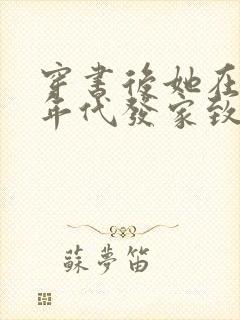 穿書後她在
年代發家致
蘇夢笛